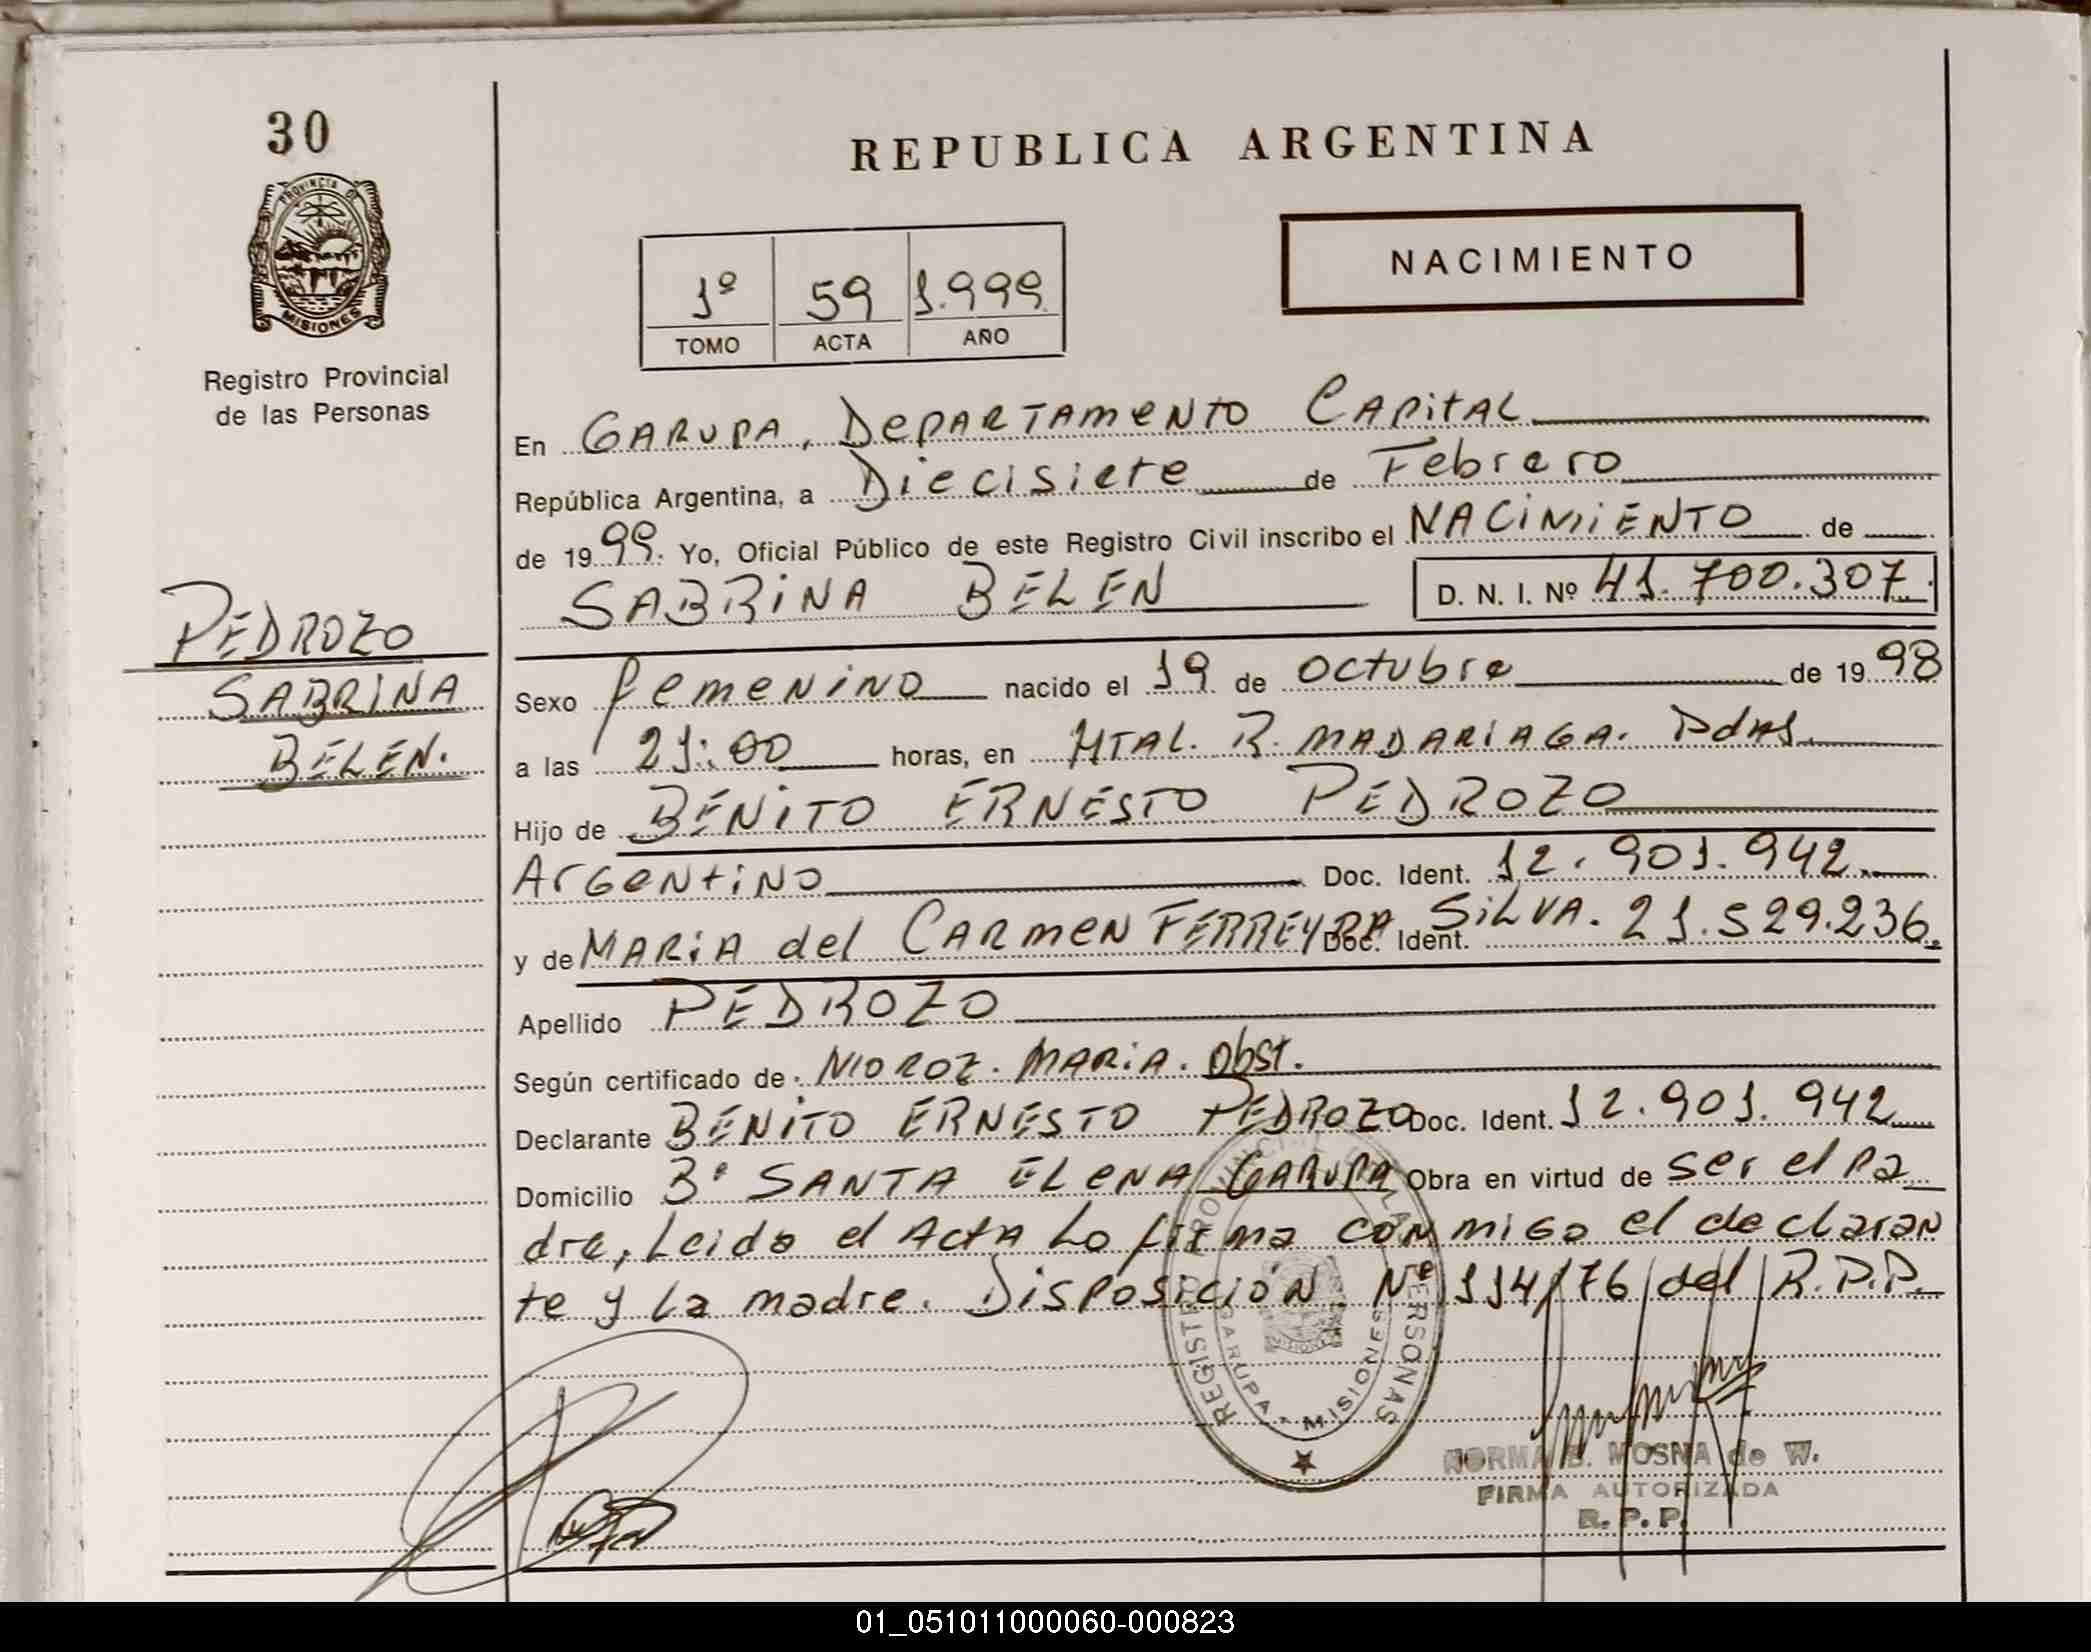 30
PROVINCIA DE
MISIONES
Registro Provincial
de las Personas
REPUBLICA ARGENTINA
NACIMIENTO
1º 59 1.999
TOMO ACTA AÑO
En GARUPA, DEPARTAMENTO CAPITAL
República Argentina, a Diecisiete de Febrero
de 1999. Yo, Oficial Público de este Registro Civil inscribo el NACIMIENTO de
SABRINA BELEN D. N. I. Nº 41.700.307.
PEDROZO
SABRINA
BELEN.
Sexo femenino nacido el 19 de octubre de 1998
a las 21:00 horas, en HTAL. R. MADARIAGA. Pdas.
Hijo de BENITO ERNESTO PEDROZO
Argentino Doc. Ident. 12.901.942.
y de MARIA del CARMEN FERREYRA Doc. Ident. SILVA. 21.529.236.
Apellido PEDROZO
Según certificado de MOROZ. MARIA. Obst.
Declarante BENITO ERNESTO PEDROZO Doc. Ident. 12.901.942
Domicilio Bº SANTA ELENA GARUPA Obra en virtud de ser el pa
dre, Leida el Acta Lo firma conmigo el declaran
te y La madre. Disposición Nº 114/76 del R.P.P.
REGISTRO PROVINCIAL DE LAS PERSONAS
GARUPA - MISIONES
NORMA B. MOSNA de W.
FIRMA AUTORIZADA
R. P. P.
01_051011000060-000823